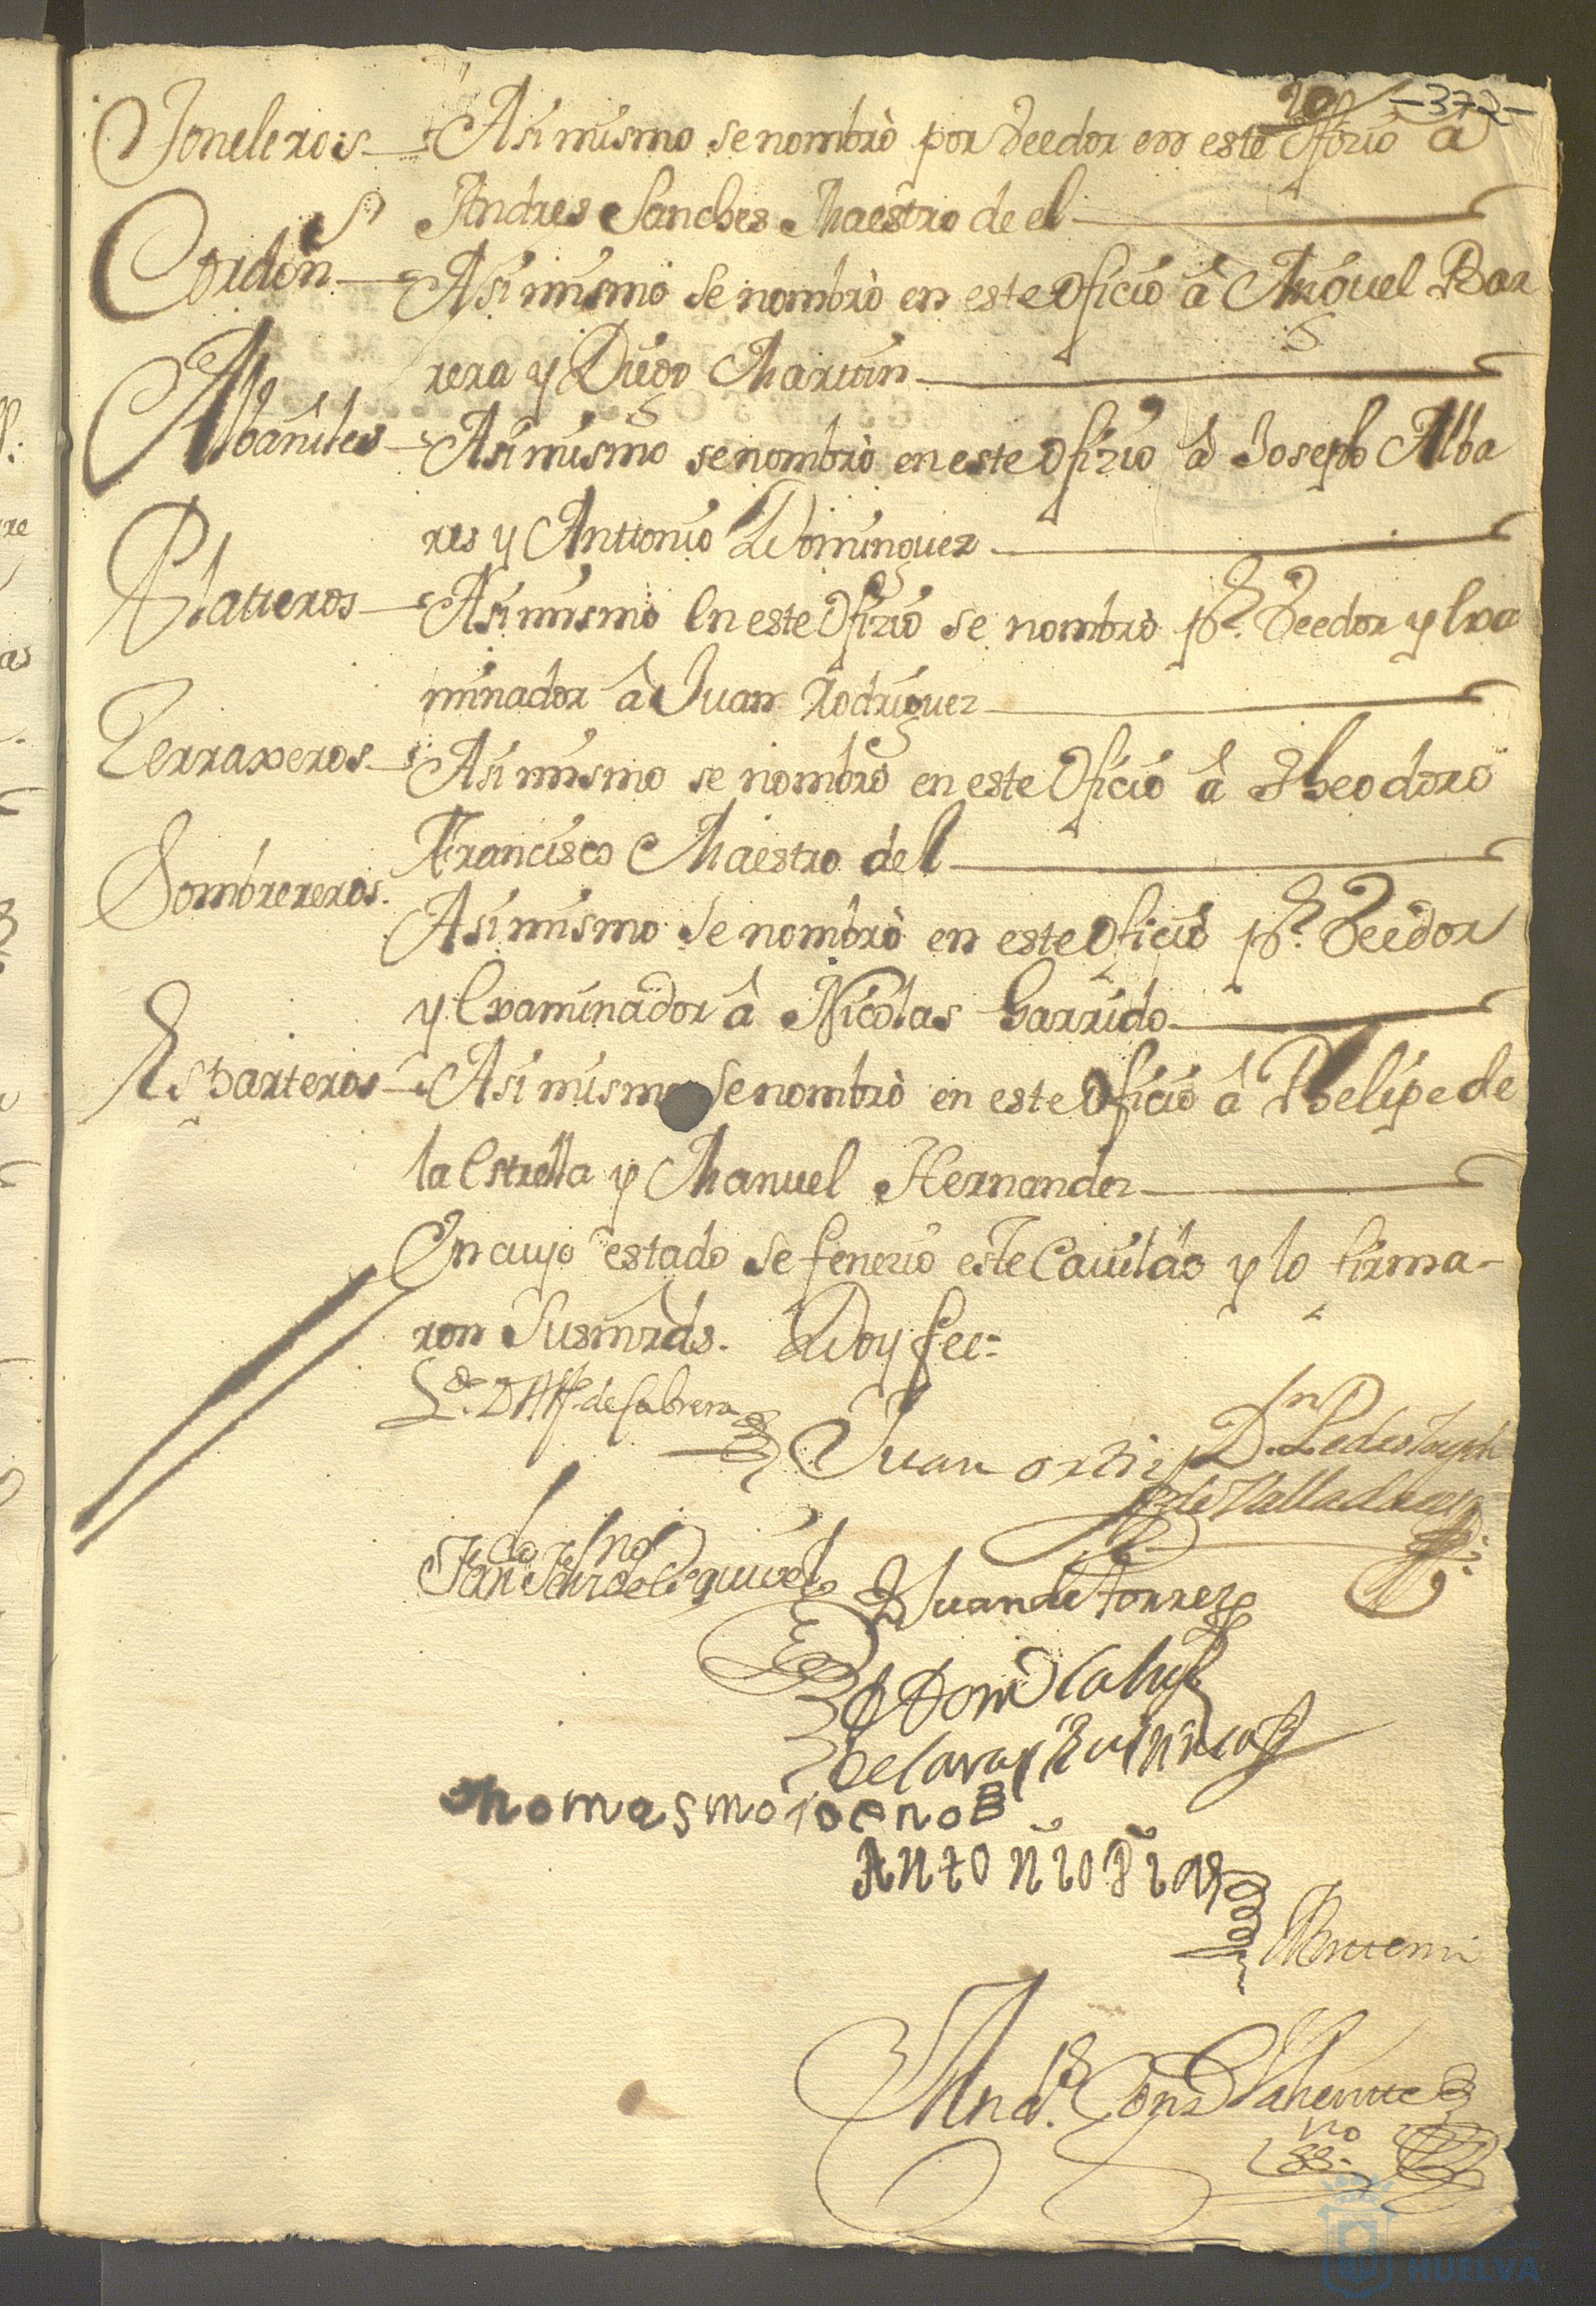 20 -372-
Toneleros Asimismo se nombrò por Veedor en este Ofizio a
Andres Sanches Maestro de el
Cordon Asimismo Se nombrò en este Oficio â Miguel Bar
rera y Diego Martin
Albañiles Asimismo se nombrò en este Ofizio â Joseph Alba
res y Anttonio Dominguez
Platteros Asimismo En este Ofizio se nombrò pr. Veedor y Exa
minador â Juan Rodriguez
Zerraxeros Asimismo se nombrò en este Oficio â Theodoro
Francisco Maestro del
Sombrereros. Asimismo Se nombrò en este Oficio pr. Veedor
y Examinador â Nicolas Garrido
Esparteros Asimismo Se nombrò en este Oficio â Phelipe de
la Estrella y Manuel Hernandez
En cuyo estado se fenezio este Cavildo y lo firma-
ron Susmrds. Doy fee=
Ldo. D Alf de Cabrera
Juan ortiz Dn.
de Valladares
Juan de torrez
Thomas moreno
Antonio Dias
Antte mi
Andrs. Gonz Valiente
ssno.
HUELVA